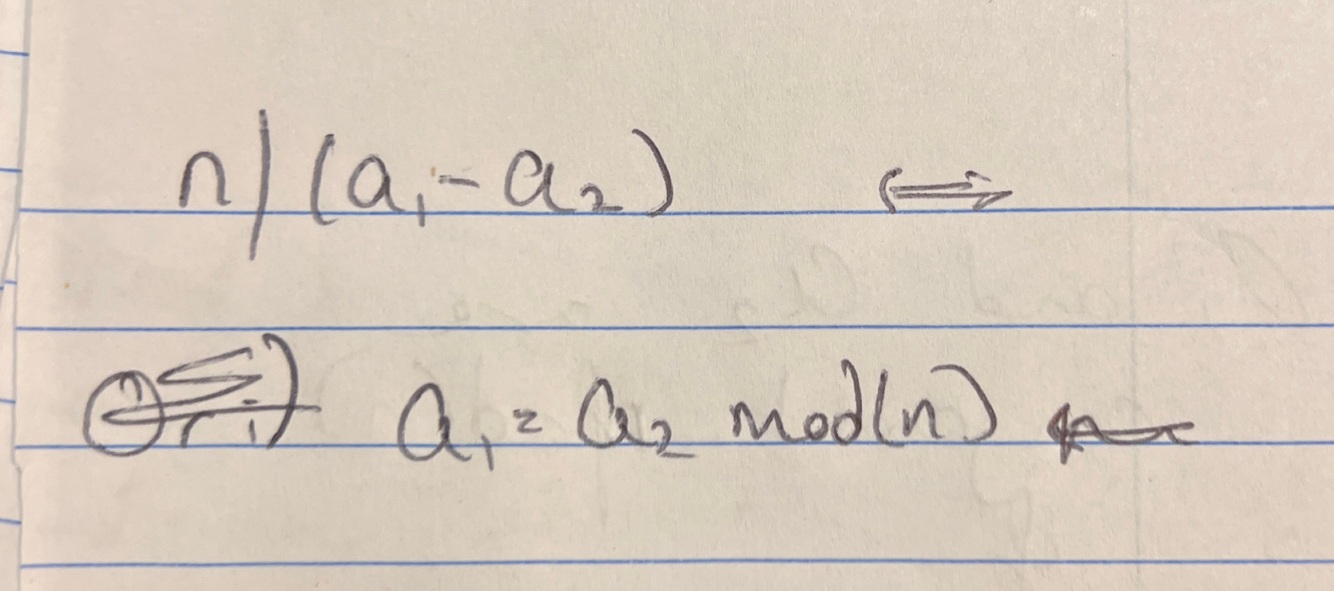 n|(a₁-a₂) ⟺
a₁=a₂ mod(n)